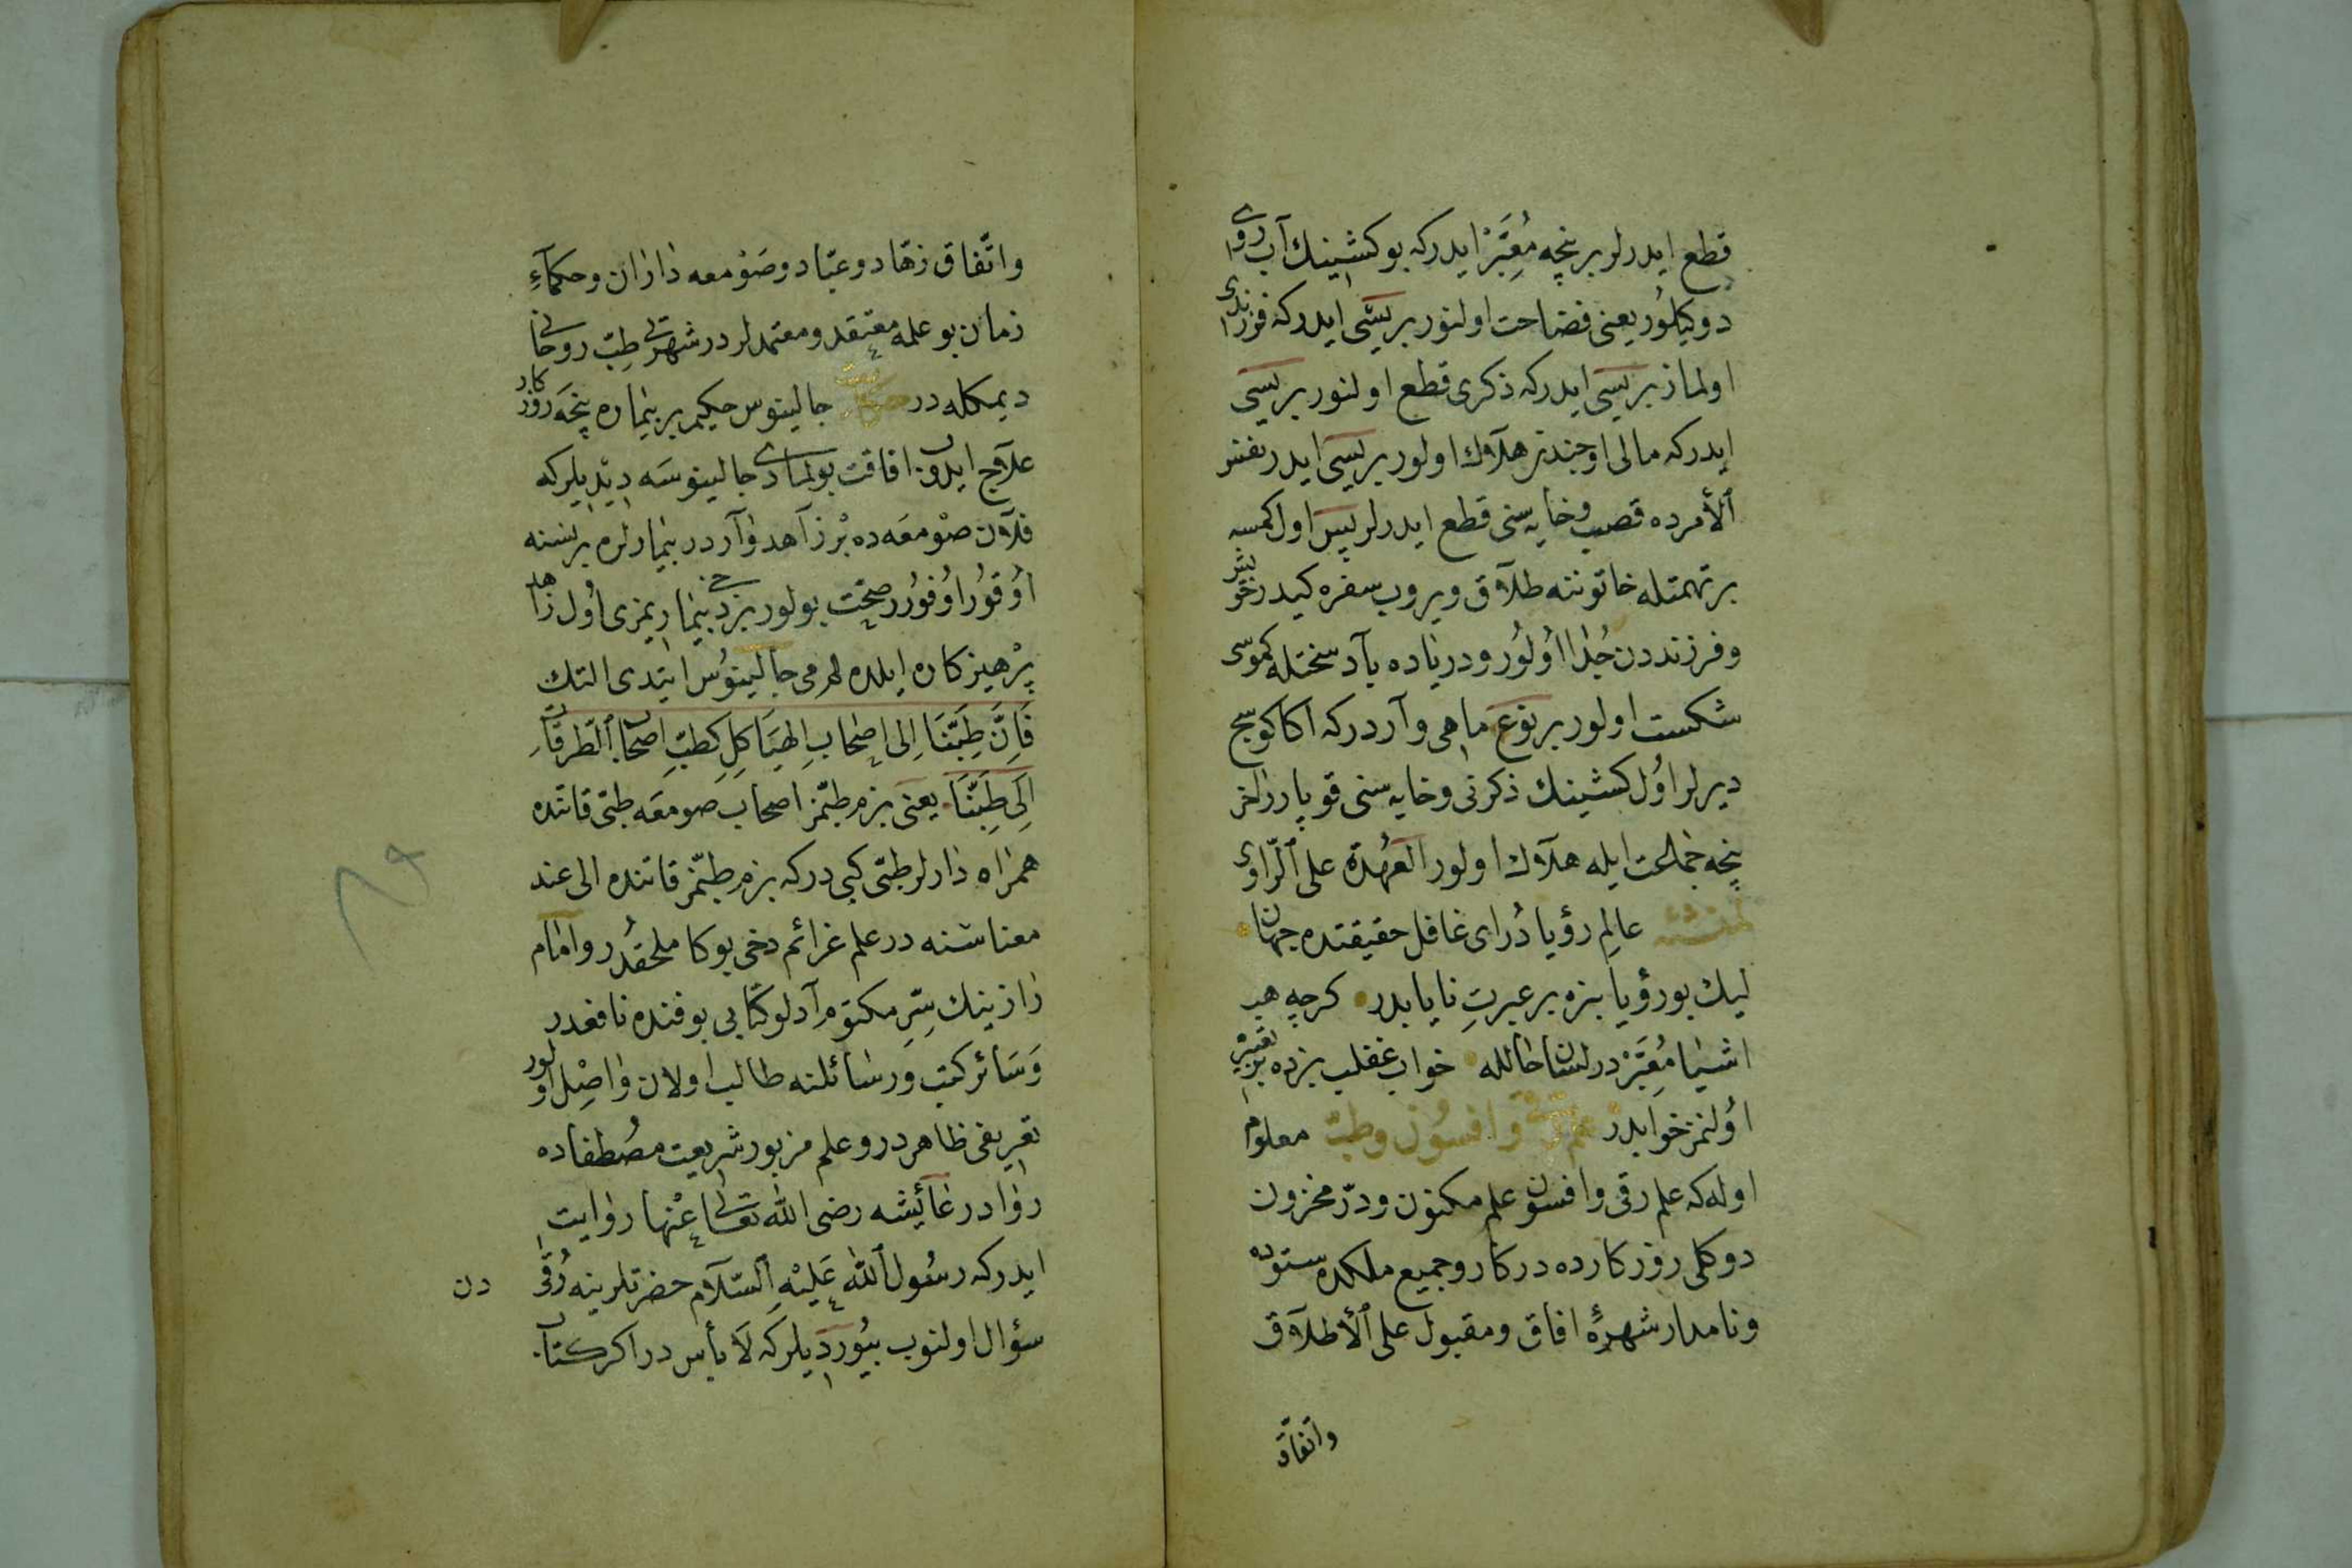 قطع ايدرلر برنچه مُعَبِّرْ ايدركه بو كشينك آب روى
دوكيلُور يعنى فضاحت اولنور بريسَى ايدركه فرزندى
اولماز بريسى ايدركه ذكرى قطع اولنور بريسى
ايدركه مالى اوجندن هلاك اولور بريسى ايدر نفس
ٱلأمرده قصب وخايه سنى قطع ايدرلر پس اول كمسه
بر تهمتله خاتوننه طلاق ويروب سفره كيدر خويش
وفرزنددن جُدا اوُلُور ودرياده باد سختله كموسى
شكست اولور بر نوع ماهى واردركه اكا كوسج
ديرلر اوُل كشينك ذكرنى وخايه سنى قوپارر آخر
پنچه خجالت ايله هلاك اولور العُهدة على ٱلرّاوى
لمنشئه عالمِ رؤيا دُر اى غافل حقيقتده جهان
ليك بو رؤيا بزه بر عبرتِ نايابدر كرچه هپ
اشيا مُعَبِّرْ در لسان حالله خواب غفلت بزده بر تعبير
اوُلنمز خوابدر علم رقى وافسُون وطبّ معلوم
اوله كه علم رقى وافسون علم مكنون ودرّ مخزون
دوكلى روزكارده دركار وجميع مللده ستوده
ونامدار شهرۀ افاق ومقبول على ٱلأطلاق
واتفاق
واتّفاق زهّاد وعبّاد وصَوْمعه داران وحكمآءِ
زمان بو علمه معتقد ومعتمدلردر شهرتى طبّ روحانى
ديمكله در حكايت جالينوس حكيم بر بيماره نچه روزكار
علاج ايلدى افاقت بولمادى جالينوسَه ديديلركه
فلان صوْمعَه ده بْر زاهد واردر بيمارلره بر نسنه
اوُقوُر اوُفوُرر صحّت بولور بز دخى بيماريمزى اوُل زاهد
پرْهيزكاره ايلده لم مى جالينوُس ايتدى التك
فَاِنَّ طِبَّنَا اِلى اصحَابِ الهيَاكِلِ كطبّ اصحاب ٱلطرقات
اِلَى طِبِّنَا يعنى بزم طبّمز اصحاب صومعَه طبّى قاتنده
همراه دارلر طبّى كبى دركه بزم طبّمز قاتنده الى عند
معناسنه در علم عزائم دخى بوكا ملحقدُر وامام
رازينك سِرِّ مكتوم آدلو كتابى بو فنده نافعدر
وَسَائر كتب وَرسائلنه طالب اولان واصِل اولور
تعريفى ظاهردر وعلم مزبور شريعت مصُطفاده
روادر عائيشه رضى الله تعالى عنْها روايت
ايدركه رسُول ٱللّه عَليْهِ ٱلسّلام حضرتلرينه رُقَى دن
سؤال اولنوب بيُورديلركه لَا بأس در اكر كتاب